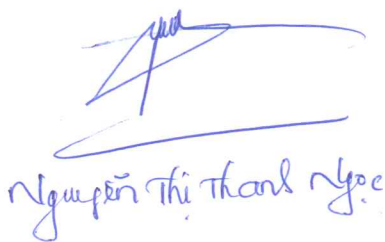 Nguyễn Thị Thanh Ngọc